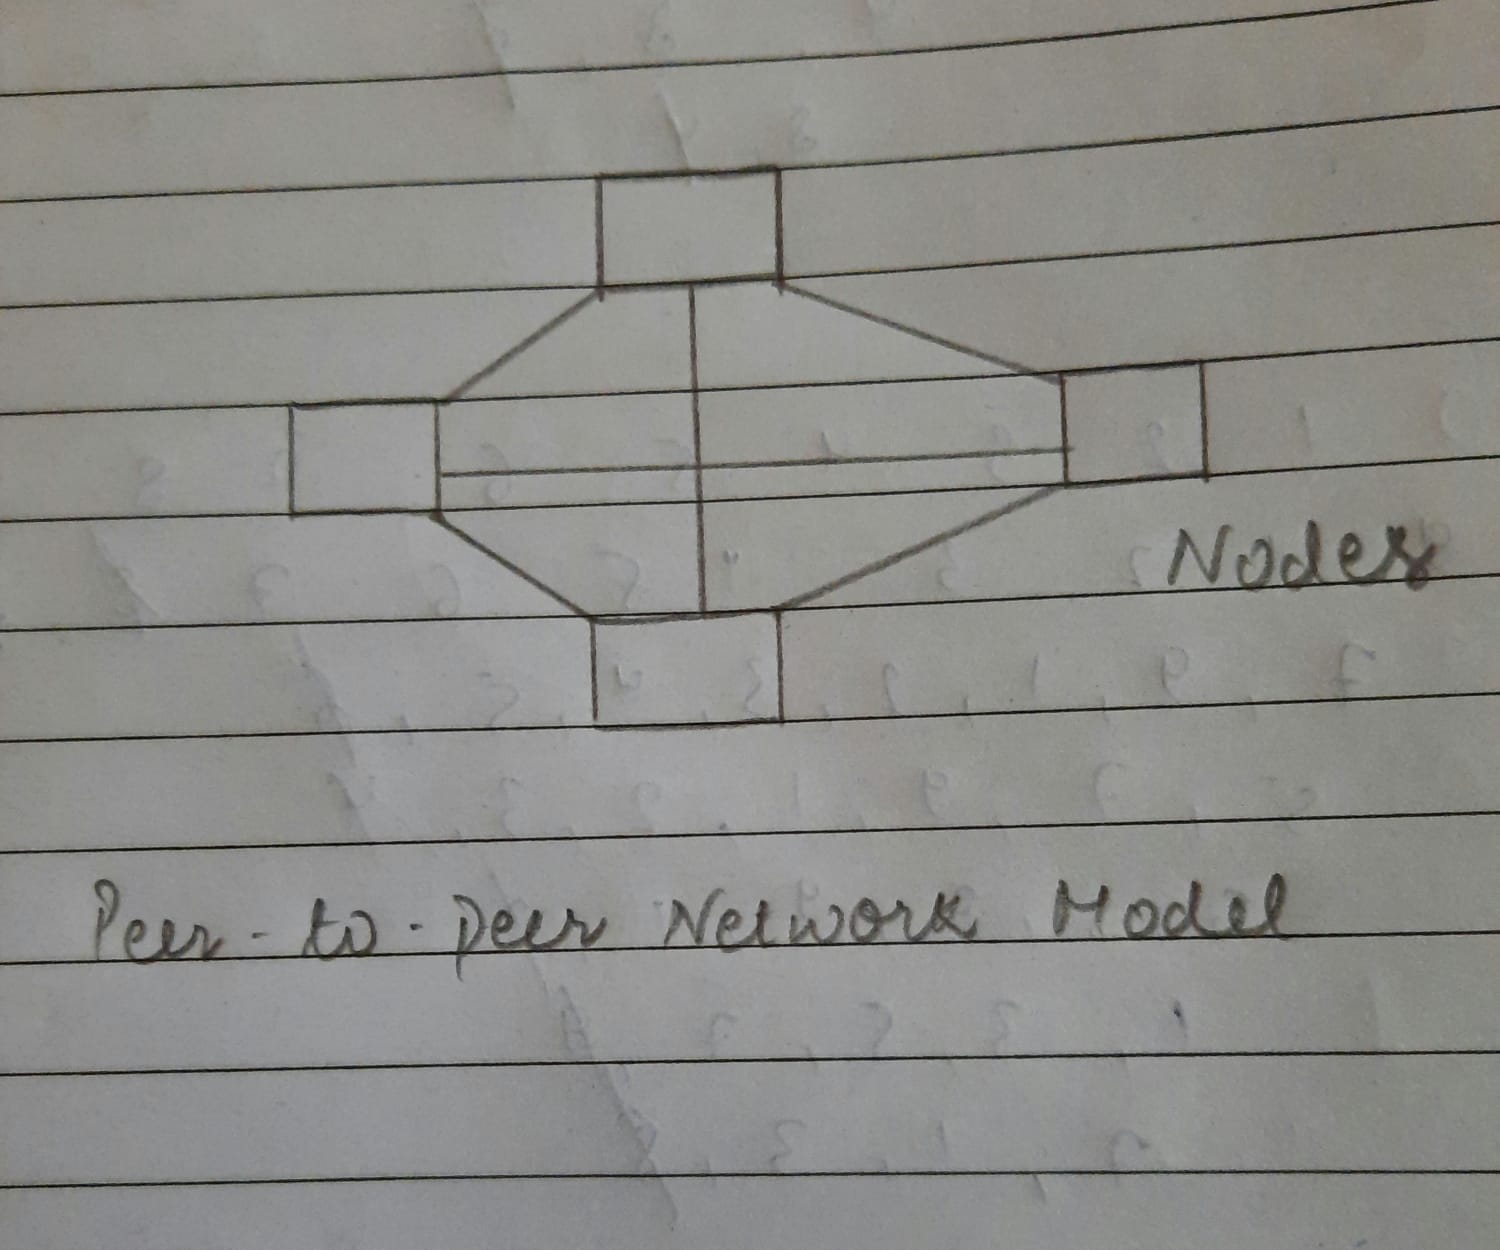 Nodes
Peer-to-peer Network Model